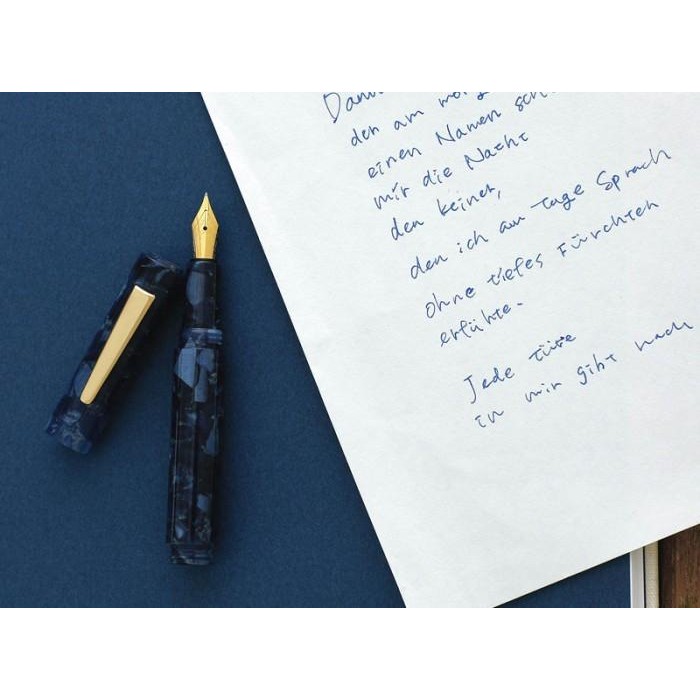 den am
einen Namen
mir die Nacht
den keiner,
den ich am Tage Sprach
ohne tiefes Fürchten
erführe.
Jede türe
in mir gibt nach